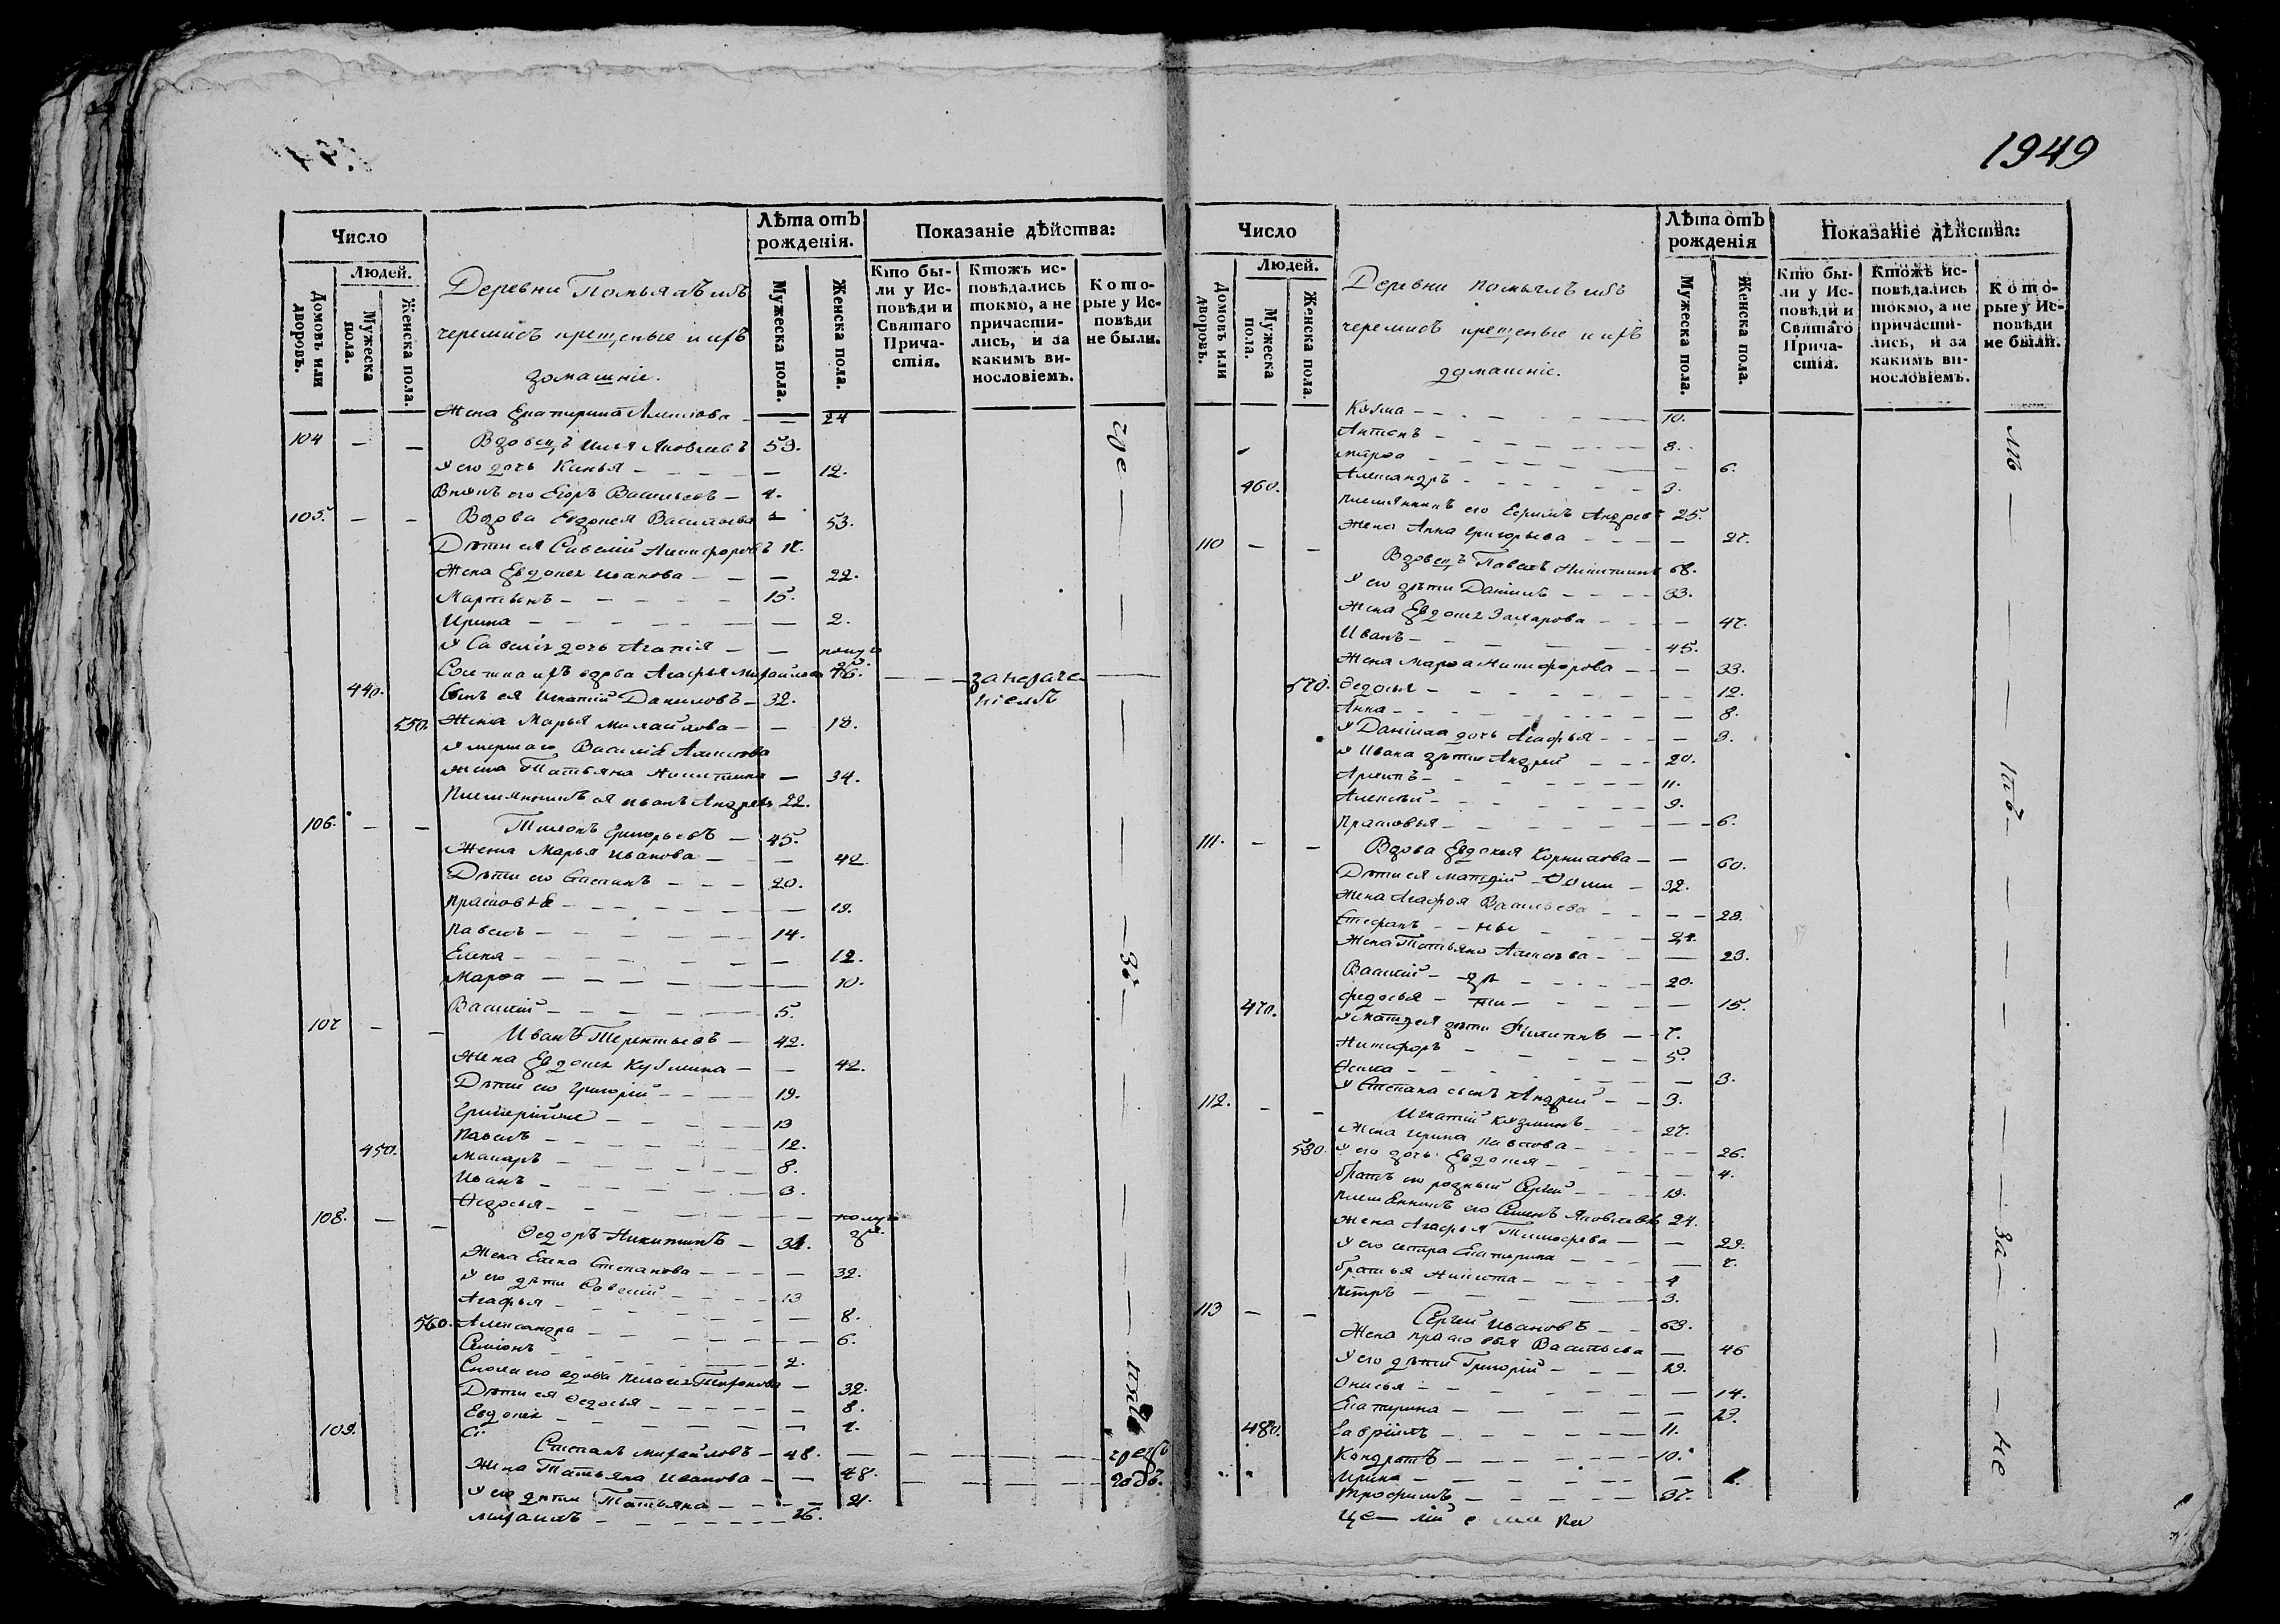 1949
Число
Людей.
Домовъ или дворовъ.
Мужеска пола.
Женска пола.
Деревни
черемисъ крещеные и ихъ
домашніе.
Лѣта отъ рожденія.
Мужеска пола.
Женска пола.
Показаніе дѣйства:
Кто бы-
ли у Ис-
повѣди и
Святаго
Прича-
стія.
Ктожъ ис-
повѣдались
токмо, а не
причасти-
лись, и за
какимъ ви-
нословіемъ.
Кото-
рые у Ис-
повѣди
не были.
Жена Екатерина Алексѣева — — 24
104 — — Вдовецъ Илья Яковлевъ 59.
У его дочь — — 12.
Внукъ его Егоръ Васильевъ — 4.
105. — — Вдова Евдокея Васильева — 53.
Дѣти ея Савелій Никифоровъ
Жена Евдокея Иванова — — 22.
Мартынъ — 15.
Ирина — — 2.
У Савелія дочь — —
вдова Агафья Михайлова
440. Сынъ ея Игнатій Даниловъ — 32.
550. Жена Марья Михайлова — — 18.
Умершаго Василія Алексѣева
жена Татьяна Никитина — 34.
Племянникъ ея Иванъ Андреевъ 22.
106. — — Тихонъ Григорьевъ — 45.
Жена Марья Иванова — — 42
Дѣти его Степанъ — 20.
Прасковья — — 19.
Павелъ — 14.
Елена — — 12.
Марѳа — — 10.
Василій — 5.
107 — — Иванъ Терентьевъ — 42.
Жена Евдокея Кузмина — — 42.
Дѣти его Григорій — 19.
13
Павелъ — 12.
450. Макаръ — 8.
Иванъ — 3.
Ѳедосья — —
108. — — Ѳедоръ Никитинъ — 34.
Жена Елена Степанова — — 32.
У его дѣти Савелій — 13
Агафья — — 8.
560. Александра — — 6.
Семіонъ — 2.
вдова — 32.
Дѣти ея Ѳедосья — — 8.
Евдокея — —
109. Степанъ Михайловъ — 48.
Жена Татьяна Иванова — — 48.
У его дѣти Татьяна — — 21.
Михаилъ — 16.
Число
Людей.
Домовъ или дворовъ.
Мужеска пола.
Женска пола.
Деревни
черемисъ крещеные и ихъ
домашніе.
Лѣта отъ рожденія
Мужеска пола.
Женска пола.
Показаніе дѣйства:
Кто бы-
ли у Ис-
повѣди и
Святаго
Прича-
стія.
Ктожъ ис-
повѣдались
токмо, а не
причасти-
лись, и за
какимъ ви-
нословіемъ.
Кото-
рые у Ис-
повѣди
не были.
Козма — 10.
Антонъ — 8.
Марѳа — — 6.
460. Александръ — 3.
Племянникъ его Ефимъ Андреевъ 25.
Жена Анна Григорьева — — 27.
110 — — Вдовецъ Павелъ Никитинъ 68.
У его дѣти Даніилъ — 33.
Жена Евдокея Захарова — — 47.
Иванъ — 45.
Жена Марѳа Никифорова — — 33.
570. Ѳедосья — — 12.
Анна — — 8.
У Даніила дочь Агафья — — 3.
У Ивана дѣти Андрей — 20.
Архипъ — 11.
Алексѣй — 9.
Прасковья — — 6.
111. — — Вдова Евдокея Корнилова — — 60.
Дѣти ея Матвій — 32.
Жена Агафья Васильева — — 28.
Стефанъ — 24.
Жена Татьяна Алексѣева — — 23.
Василій — 20.
470. Федосья — — 15.
У Матвея дѣти Филиппъ — 7.
Никифоръ — 5.
— 3.
У Степана сынъ Андрей — 3.
112. — — Игнатій Козминъ — 27.
Жена Ирина Павлова — — 26.
580. У его дочь Евдокея — — 4.
Братъ его родный Сергей — 19.
Племянникъ его Семенъ Яковлевъ 24.
Жена Агафья Тимофеева — — 29.
У его сестра Екатерина — — 7.
братья Никита — 4
Петръ — 3.
113 — — Сергей Ивановъ — 63.
Жена Прасковья Васильева — 46
У его дѣти Григорій — 19.
Онисья — — 14.
Екатерина — — 13.
480. Гавріилъ — 11.
Кондратъ — 10.
Ирина — — 1.
Трофимъ — 37.